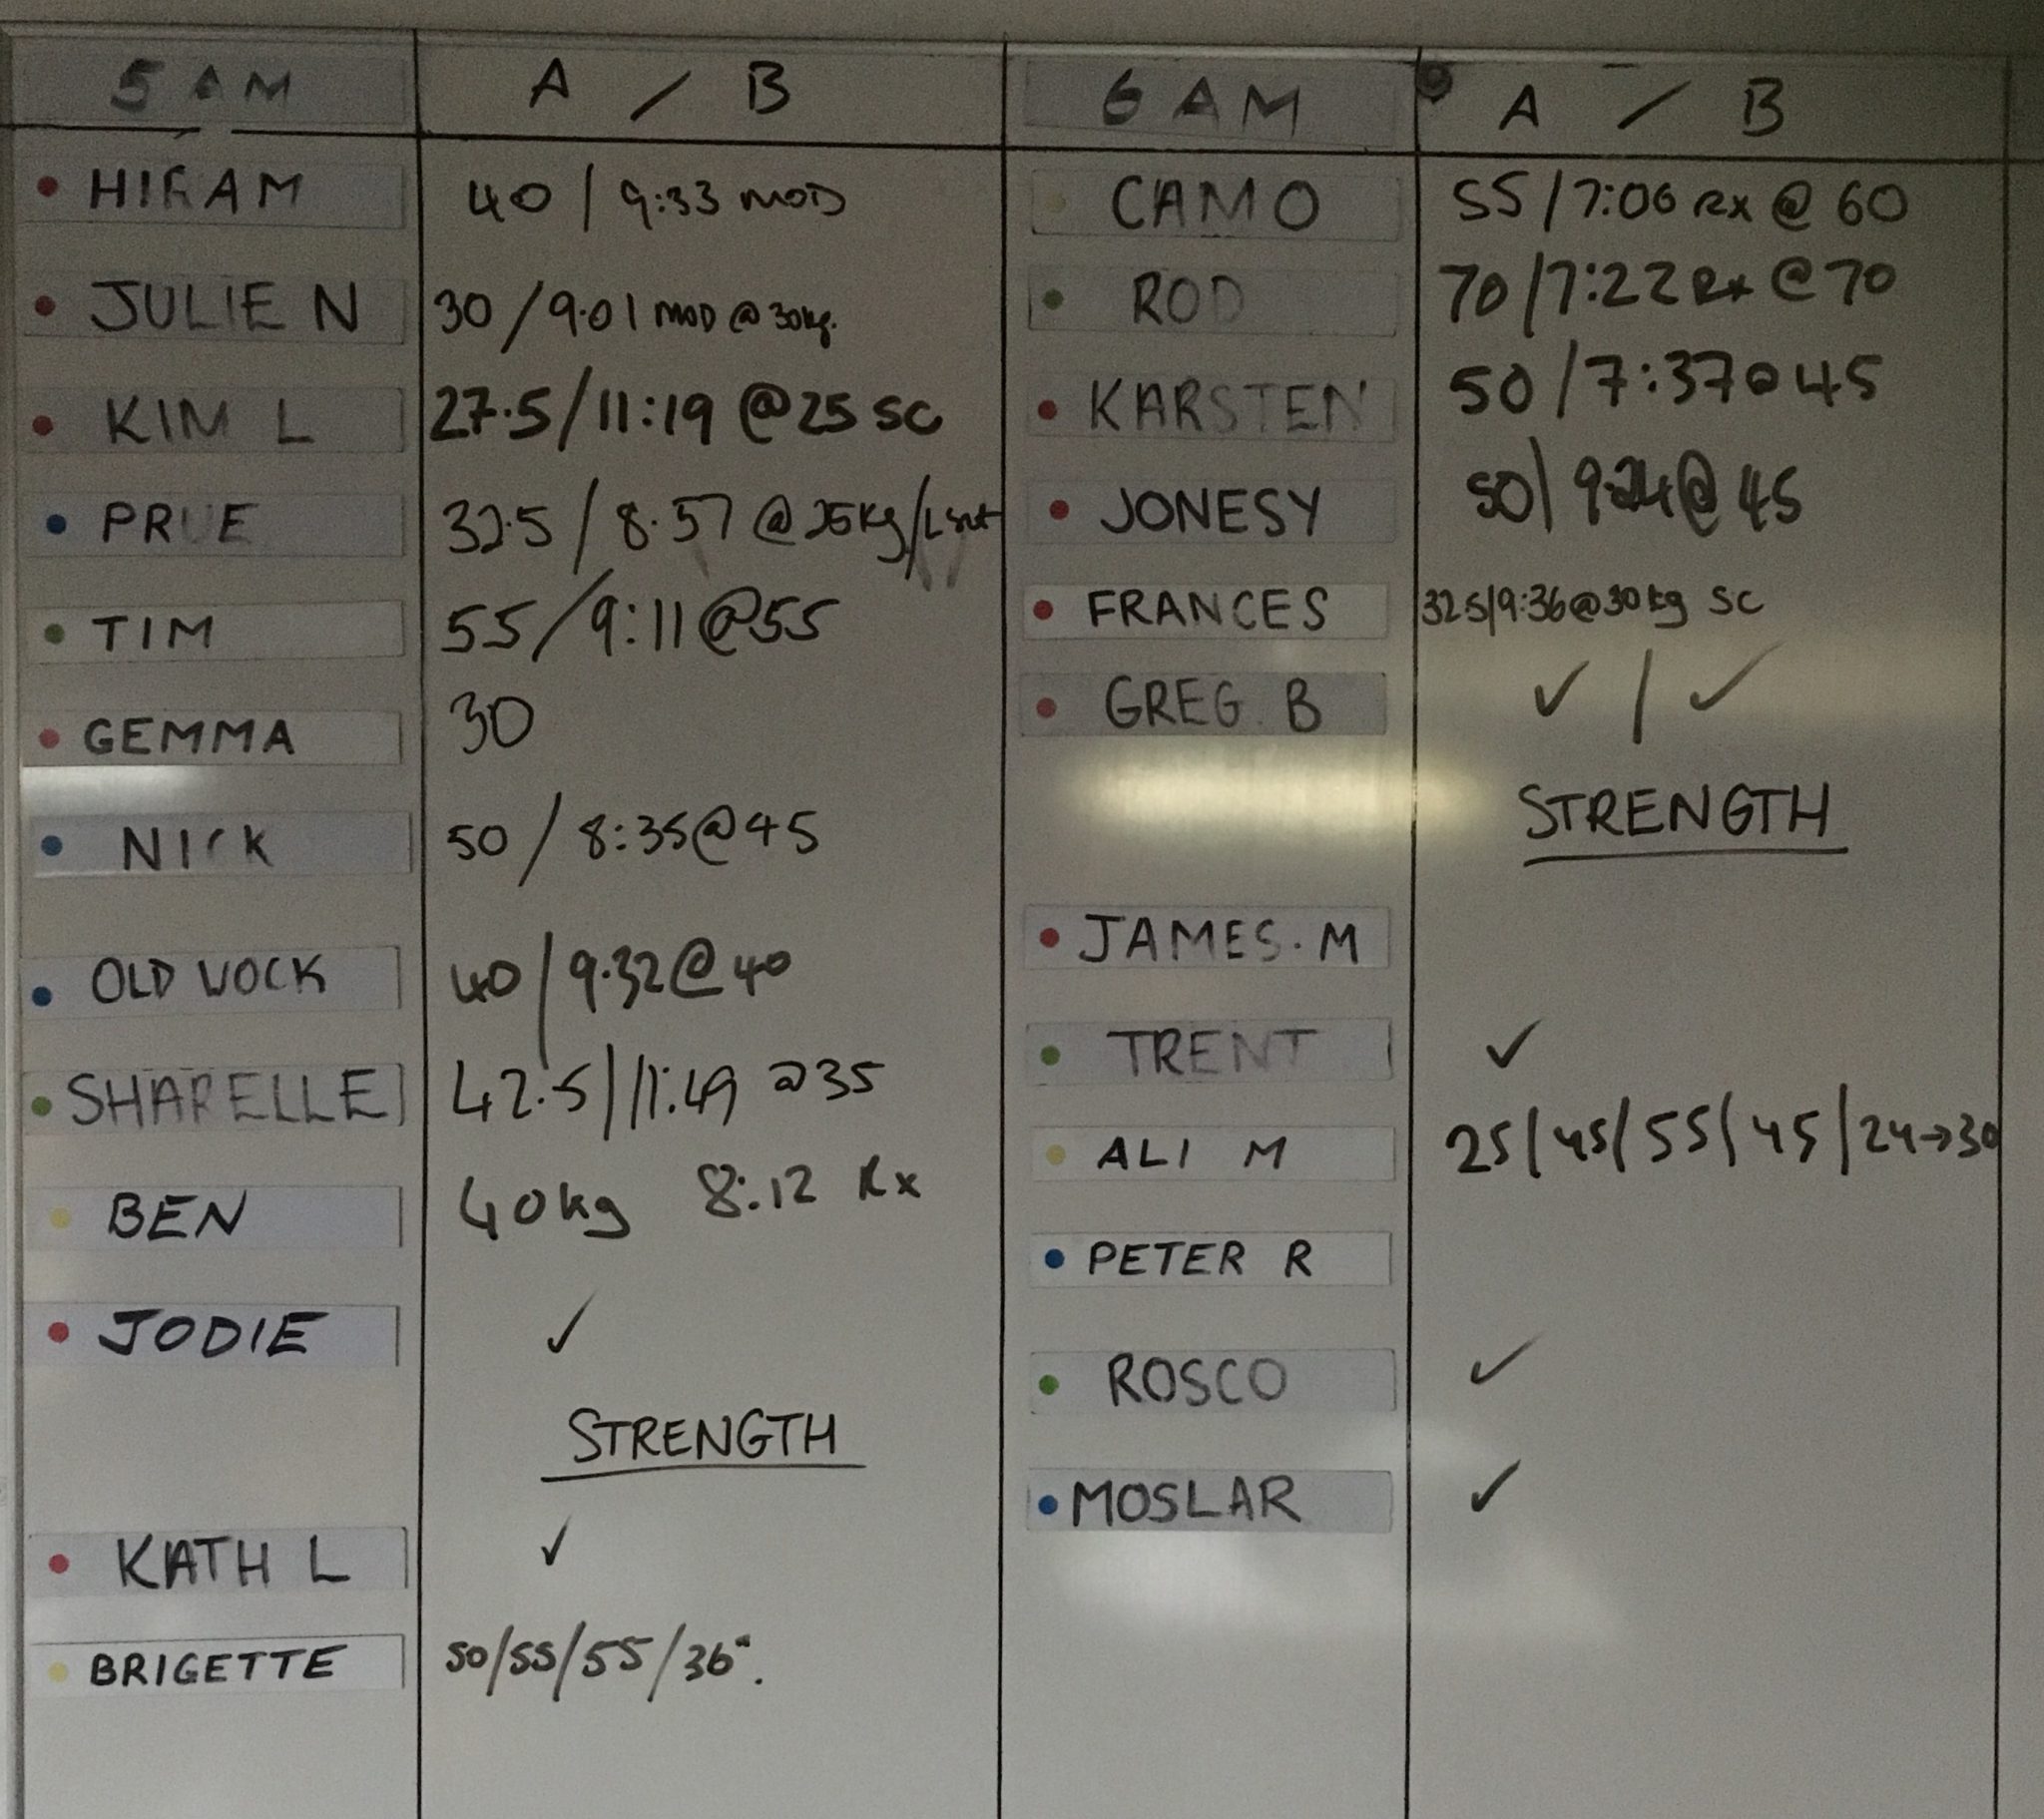 5 AM A / B
HIRAM 40 / 9:33 MOD
JULIE N 30 / 9.01 MOD @ 30kg.
KIM L 27.5/11:19 @25 SC
PRUE 32.5 / 8.57 @ 25kg/
TIM 55/9:11@55
GEMMA 30
NICK 50 / 8:35@45
OLD WOCK 40 / 9.32@40
SHARELLE 42.5/11:49 @35
BEN 40kg 8:12 Rx
JODIE ✓
STRENGTH
KATH L ✓
BRIGETTE 50/55/55/36".
6 AM A / B
CAMO 55/7:06 Rx @ 60
ROD 70/7:22 Rx @70
KARSTEN 50/7:37@45
JONESY 50| @ 45
FRANCES 32.5/9:36@30kg SC
GREG. B ✓ / ✓
STRENGTH
JAMES. M
TRENT ✓
ALI M 25/45/55/45/24→30
PETER R
ROSCO ✓
MOSLAR ✓